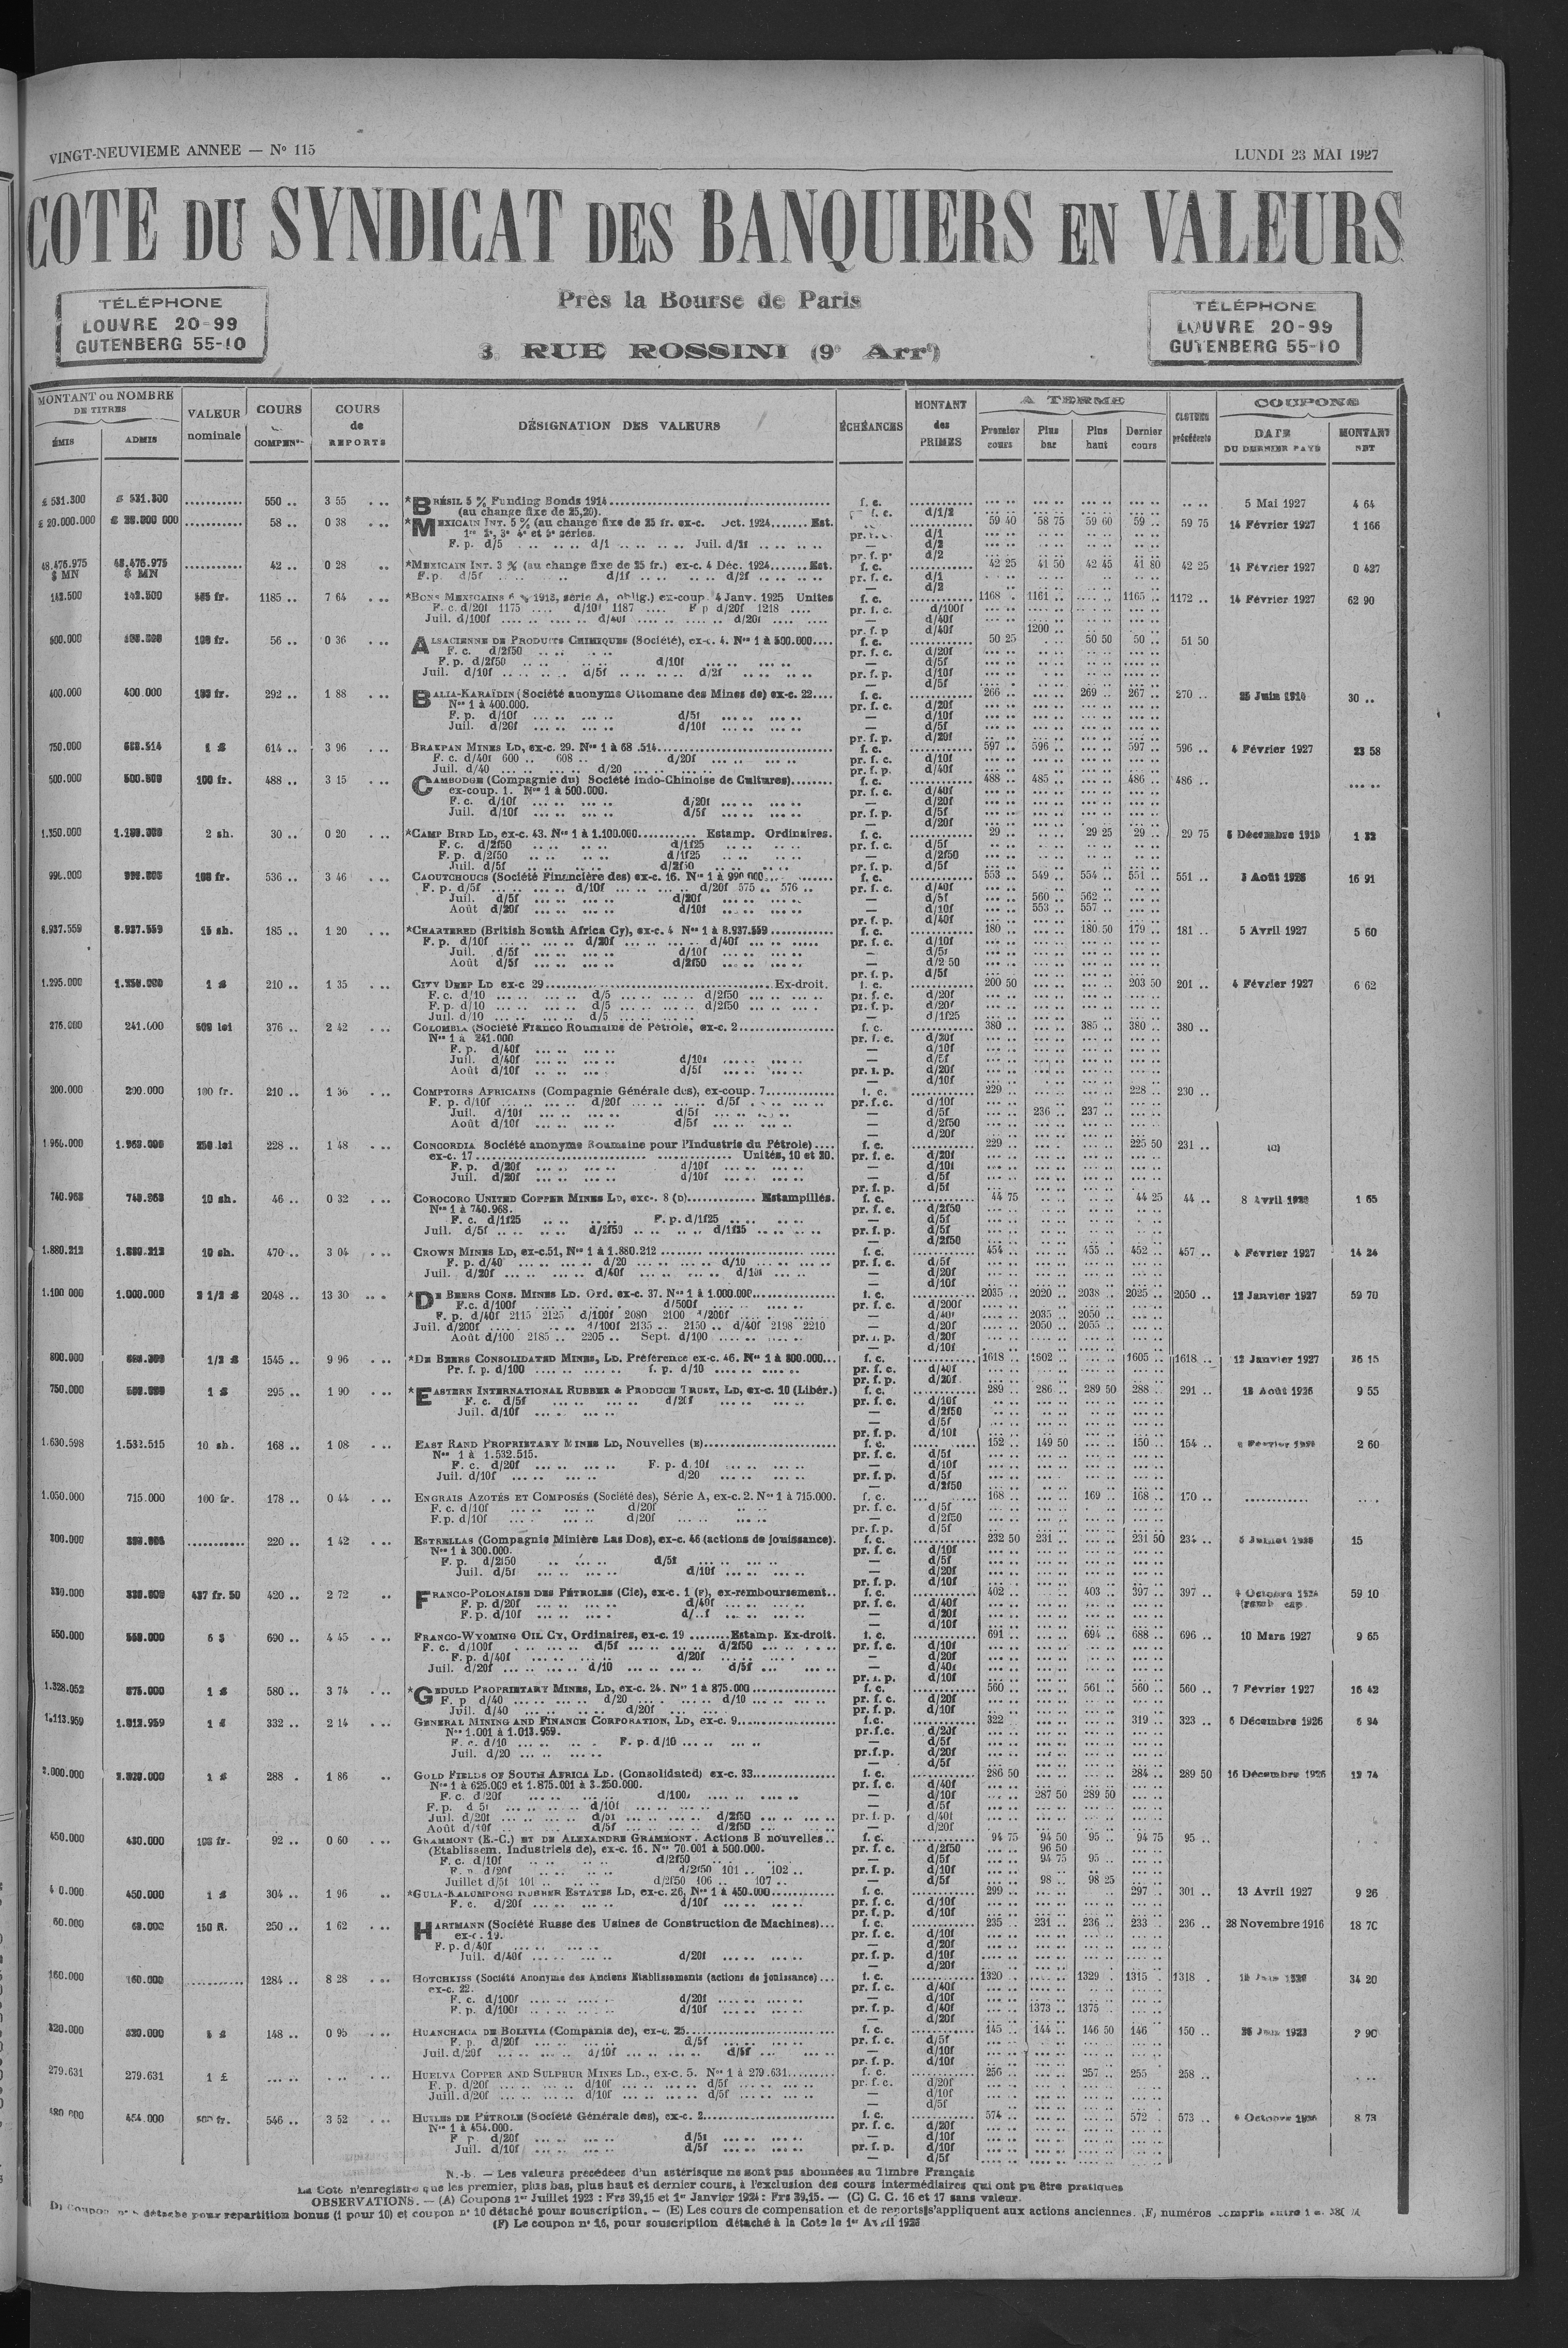 VINGT-NEUVIEME ANNEE — N° 115
LUNDI 23 MAI 1927
COTE DU SYNDICAT DES BANQUIERS EN VALEURS
Près la Bourse de Paris
3 RUE ROSSINI (9e Arrt)
TÉLÉPHONE
LOUVRE 20-99
GUTENBERG 55-10
TÉLÉPHONE
LOUVRE 20-99
GUTENBERG 55-10
MONTANT ou NOMBRE DE TITRES
ÉMIS
ADMIS
VALEUR nominale
COURS COMPEN
COURS de REPORTS
DÉSIGNATION DES VALEURS
ÉCHÉANCES
MONTANT des PRIMES
A TERME
Premier cours
Plus bas
Plus haut
Dernier cours
CLOTURE précédente
COUPONS
DATE DU DERNIER PAYÉ
MONTANT NET
£ 531.300 £ 531.300 550 .. 3 55 *BRÉSIL 5 % Funding Bonds 1914 f. c. 5 Mai 1927 4 64
(au change fixe de 25,20). f. c. d/1/2
£ 20.000.000 58 .. 0 38 *MEXICAIN INT. 5 % (au change fixe de 25 fr. ex-c. Oct. 1924 Est. 59 40 58 75 59 60 59 .. 59 75 14 Février 1927 1 166
1re 2e, 3e 4e et 5e séries. d/1
F. p. d/5 d/1 Juil. d/2f d/2
48.476.975 $ MN 48.476.975 $ MN 42 .. 0 28 *MEXICAIN INT. 3 % (au change fixe de 25 fr.) ex-c. 4 Déc. 1924 Est. f. c. 42 25 41 50 42 45 41 80 42 25 14 Février 1927 0 437
F.p. d/5f d/1f d/2f pr. f. c. d/1
142.500 142.500 1185 .. 7 64 *BONS MEXICAINS 6 % 1913, série A, oblig.) ex-coup. 4 Janv. 1925 Unites f. c. 1168 .. 1161 .. 1165 .. 1172 .. 14 Février 1927 62 90
F. c. d/20f 1175 d/10f 1187 F p d/20f 1218 pr. f. c. d/100f
Juil. d/100f d/40f d/20f d/40f
pr. f. p d/40f 1200 ..
500.000 100 fr. 56 .. 0 36 ALSACIENNE DE PRODUITS CHIMIQUES (Société), ex-c. 4. Nos 1 à 500.000 f. c. 50 25 50 50 50 .. 51 50
F. c. d/2f50 pr. f. c. d/20f
F. p. d/2f50 d/10f d/5f
Juil. d/10f d/5f d/2f pr. f. p. d/10f
400.000 400.000 292 .. 1 88 BALIA-KARAÏDIN (Société anonyme Ottomane des Mines de) ex-c. 22 f. c. 266 .. 269 .. 267 .. 270 .. 30 ..
Nos 1 à 400.000. pr. f. c. d/20f
F. p. d/10f d/5f d/10f
Juil. d/20f d/10f d/5f
pr. f. p. d/20f
750.000 614 .. 3 96 BRAKPAN MINES LD, ex-c. 29. f. c. 597 .. 596 .. 597 .. 596 .. 4 Février 1927 23 58
F. c. d/40f 600 .. 608 .. d/20f pr. f. c. d/10f
Juil. d/40 d/20 pr. f. p. d/40f
500.000 500.000 100 fr. 488 .. 3 15 CAMBODGE (Compagnie du) Société Indo-Chinoise de Cultures) f. c. 488 .. 485 .. 486 .. 486 ..
ex-coup. 1. Nos 1 à 500.000. pr. f. c. d/40f
F. c. d/10f d/20f d/20f
Juil. d/10f d/5f pr. f. p. d/5f
d/20f
1.350.000 2 sh. 30 .. 0 20 *CAMP BIRD LD, ex-c. 43. Nos 1 à 1.100.000 Estamp. Ordinaires. f. c. 29 .. 29 25 29 .. 29 75 1 32
F. c. d/2f50 d/1f25 pr. f. c. d/5f
F. p. d/2f50 d/1f25 d/2f50
Juil. d/5f d/2f50 pr. f. p. d/5f
536 .. 3 46 CAOUTCHOUCS (Société Financière des) ex-c. 16. Nos 1 à 990.000 f. c. 553 .. 549 .. 554 .. 551 .. 551 .. 3 Août 1926 16 91
F. p. d/5f d/10f d/20f 575 .. 576 .. pr. f. c. d/40f
Juil. d/5f d/20f d/5f 560 .. 562 ..
Août d/20f d/10f d/10f 553 .. 557 ..
pr. f. p. d/40f
8.937.559 8.937.559 15 sh. 185 .. 1 20 *CHARTERED (British South Africa Cy), ex-c. 4 Nos 1 à 8.937.559 f. c. 180 .. 180 50 179 .. 181 .. 5 Avril 1927 5 60
F. p. d/10f d/20f d/40f pr. f. c. d/10f
Juil. d/5f d/10f d/5f
Août d/5f d/2f50 d/2 50
pr. f. p. d/5f
1.295.000 210 .. 1 35 CITY DEEP LD ex-c 29 Ex-droit. f. c. 200 50 203 50 201 .. 4 Février 1927 6 62
F. c. d/10 d/5 d/2f50 pr. f. c. d/20f
F. p. d/10 d/5 d/2f50 pr. f. p. d/20f
Juil. d/10 d/5 d/1f25
241.000 500 lei 376 .. 2 42 COLOMBIA (Société Franco Roumaine de Pétrole, ex-c. 2 f. c. 380 .. 385 .. 380 .. 380 ..
Nos 1 à 241.000 pr. f. c. d/20f
F. p. d/40f d/10f
Juil. d/40f d/10f d/5f
Août d/10f d/5f d/20f
d/10f
200.000 200.000 100 fr. 210 .. 1 36 COMPTOIRS AFRICAINS (Compagnie Générale des), ex-coup. 7 f. c. 229 .. 228 .. 230 ..
F. p. d/10f d/20f d/5f pr. f. c. d/10f
Juil. d/10f d/5f d/5f 236 .. 237 ..
Août d/10f d/5f d/2f50
d/20f
250 lei 228 .. 1 48 CONCORDIA Société anonyme Roumaine pour l'Industrie du Pétrole) f. c. 229 .. 225 50 231 .. (C)
ex-c. 17 Unités, 10 et 20. pr. f. c. d/20f
F. p. d/20f d/10f d/10f
Juil. d/20f d/10f d/5f
pr. f. p. d/5f
740.968 740.968 10 sh. 46 .. 0 32 COROCORO UNITED COPPER MINES LD, exc-. 8 (D) Estampillés. f. c. 44 75 44 25 44 .. 1 65
Nos 1 à 740.968. pr. f. c. d/2f50
F. c. d/1f25 F. p. d/1f25 d/5f
Juil. d/5f d/2f50 d/1f25 pr. f. p. d/5f
d/2f50
1.880.212 1.880.212 10 sh. 470 .. 3 04 CROWN MINES LD, ex-c.51, Nos 1 à 1.880.212 f. c. 454 .. 455 .. 452 .. 457 .. 4 Février 1927 14 24
F. p. d/40 d/20 d/10 pr. f. c. d/5f
Juil. d/20f d/40f d/10f d/20f
d/10f
1.100 000 1.000.000 2 1/2 £ 2048 .. 13 30 *DE BEERS CONS. MINES LD. Ord. ex-c. 37. Nos 1 à 1.000.000 f. c. 2035 .. 2020 .. 2038 .. 2025 .. 2050 .. 12 Janvier 1927 59 70
F.c. d/100f d/500f pr. f. c. d/200f
F. p. d/40f 2115 2125 d/100f 2080 2100 d/200f d/40f 2035 .. 2050 ..
Juil. d/200f d/100f 2135 .. 2150 .. d/40f 2198 2210 d/20f 2050 .. 2055 ..
Août d/100 2185 .. 2205 .. Sept. d/100 d/20f
d/10f
800.000 1/2 £ 1545 .. 9 96 *DE BEERS CONSOLIDATED MINES, LD. Préférence ex-c. 46. Nos 1 à 800.000 f. c. 1618 .. 1602 .. 1605 .. 1618 .. 12 Janvier 1927 26 15
Pr. f. p. d/100 f. p. d/10 pr. f. c. d/40f
pr. f. p. d/20f
750.000 1 £ 295 .. 1 90 *EASTERN INTERNATIONAL RUBBER & PRODUCE TRUST, LD, ex-c. 10 (Libér.) f. c. 289 .. 286 .. 289 50 288 .. 291 .. 18 Août 1926 9 55
F. c. d/5f d/20f pr. f. c. d/10f
Juil. d/10f d/2f50
d/5f
pr. f. p. d/10f
1.630.598 1.532.515 10 sh. 168 .. 1 08 EAST RAND PROPRIETARY MINES LD, Nouvelles (E) f. c. 152 .. 149 50 150 .. 154 .. 2 60
Nos 1 à 1.532.515. pr. f. c. d/5f
F. c. d/20f F. p. d. 10f d/10f
Juil. d/10f d/20 pr. f. p. d/5f
d/2f50
1.050.000 715.000 100 fr. 178 .. 0 44 ENGRAIS AZOTÉS ET COMPOSÉS (Société des), Série A, ex-c. 2. Nos 1 à 715.000. f. c. 168 .. 169 .. 168 .. 170 ..
F. c. d/10f d/20f pr. f. c. d/5f
F. p. d/10f d/20f d/2f50
pr. f. p. d/5f
300.000 220 .. 1 42 ESTRELLAS (Compagnie Minière Las Dos), ex-c. 46 (actions de jouissance). f. c. 232 50 231 .. 231 50 234 .. 15
Nos 1 à 300.000. pr. f. c. d/10f
F. p. d/2f50 d/5f d/5f
Juil. d/5f d/10f d/20f
pr. f. p. d/10f
437 fr. 50 420 .. 2 72 FRANCO-POLONAISE DES PÉTROLES (Cie), ex-c. 1 (F), ex-remboursement f. c. 402 .. 403 .. 397 .. 397 .. 59 10
F. p. d/20f d/40f pr. f. c. d/40f
F. p. d/10f d/20f
d/10f
550.000 690 .. 4 45 FRANCO-WYOMING OIL CY, Ordinaires, ex-c. 19 Estamp. Ex-droit. f. c. 691 .. 694 .. 688 .. 696 .. 10 Mars 1927 9 65
F. c. d/100f d/5f d/2f50 pr. f. c. d/10f
F. p. d/40f d/20f d/20f
Juil. d/20f d/10 d/5f d/40f
d/10f
1.328.052 875.000 1 £ 580 .. 3 74 *GEDULD PROPRIETARY MINES, LD, ex-c. 24. Nos 1 à 875.000 f. c. 560 .. 561 .. 560 .. 560 .. 7 Février 1927 16 42
F. p d/40 d/20 d/10 pr. f. c. d/20f
Juil. d/40 d/20f pr. f. p. d/10f
1.113.959 1 £ 332 .. 2 14 GENERAL MINING AND FINANCE CORPORATION, LD, ex-c. 9 f.c. 322 319 .. 323 .. 6 Décembre 1926 6 94
Nos 1.001 à 1.013.959. pr.f.c. d/20f
F. c. d/10 F. p. d/10 d/5f
Juil. d/20 pr.f.p. d/20f
d/5f
1 £ 288 . 1 86 GOLD FIELDS OF SOUTH AFRICA LD. (Consolidated) ex-c. 33 f. c. 286 50 284 .. 289 50 16 Décembre 1926 12 74
Nos 1 à 625.009 et 1.875.001 à 3.250.000. pr. f. c. d/40f
F. c. d/20f d/100f d/10f 287 50 289 50
F. p. d 5f d/10f d/5f
Juil. d/20f d/5f d/2f50 pr. f. p. d/40f
Août d/10f d/5f d/2f50 d/20f
450.000 92 .. 0 60 GRAMMONT (E.-C.) ET DE ALEXANDRE GRAMMONT. Actions B nouvelles f. c. 94 75 94 50 95 .. 94 75 95 ..
(Etablissem. Industriels de), ex-c. 16. Nos 70.001 à 500.000. pr. f. c. d/2f50 96 50
F. c. d/10f d/2f50 d/5f 94 75 95 ..
F. p. d/20f d/2f50 101 .. 102 .. pr. f. p. d/10f
Juillet d/5f 101 .. d/2f50 106 .. 107 .. d/5f 98 .. 98 25
450.000 1 £ 304 .. 1 96 *GULA-KALUMPONG RUBBER ESTATES LD, ex-c. 26, Nos 1 à 450.000 f. c. 299 .. 297 .. 301 .. 13 Avril 1927 9 26
F. c. d/20f d/10f pr. f. c. d/10f
pr. f. p. d/10f
60.000 150 R. 250 .. 1 62 HARTMANN (Société Russe des Usines de Construction de Machines) f. c. 235 .. 231 .. 236 .. 233 .. 236 .. 28 Novembre 1916 18 70
ex-c. 19. pr. f. c. d/10f
F. p. d/40f d/20f
Juil. d/40f d/20f pr. f. p. d/10f
d/20f
160.000 160.000 1284 .. 8 28 HOTCHKISS (Société Anonyme des Anciens Etablissements (actions de jouissance) f. c. 1320 .. 1329 .. 1315 .. 1318 . 34 20
ex-c. 22. pr. f. c. d/40f
F. c. d/100f d/20f d/10f
F. p. d/100f d/10f pr. f. p. d/40f 1373 .. 1375
d/20f
148 .. 0 95 HUANCHACA DE BOLIVIA (Compania de), ex-c. 25 f. c. 145 .. 144 .. 146 50 146 150 .. 2 90
F. p. d/20f d/5f pr. f. c. d/5f
Juil. d/20f d/10f d/5f d/10f
pr. f. p. d/10f
279.631 279.631 1 £ HUELVA COPPER AND SULPHUR MINES LD., ex-c. 5. Nos 1 à 279.631 f. c. 256 257 .. 255 258 ..
F. p. d/20f d/10f d/5f pr. f. c. d/20f
Juil. d/20f d/10f d/5f d/10f
d/5f
454.000 546 .. 3 52 HUILES DE PÉTROLE (Société Générale des), ex-c. 2 f. c. 574 .. 572 .. 573 .. 8 73
Nos 1 à 454.000. pr. f. c. d/20f
F p. d/20f d/5f d/10f
Juil. d/10f d/5f pr. f. p. d/10f
d/5f
N.-b. — Les valeurs précédées d'un astérisque ne sont pas abonnées au Timbre Français
La Cote n'enregistre que les premier, plus bas, plus haut et dernier cours, à l'exclusion des cours intermédiaires qui ont pu être pratiqués
OBSERVATIONS. — (A) Coupons 1er Juillet 1923 : Frs 39,15 et 1er Janvier 1924 : Frs 39,15. — (C) C. C. 16 et 17 sans valeur.
détaché pour repartition bonus (1 pour 10) et coupon n° 10 détaché pour souscription. — (E) Les cours de compensation et de reports s'appliquent aux actions anciennes. (F) numéros compris entre 1
(F) Le coupon n° 16, pour souscription détaché à la Cote le 1er Avril 1926